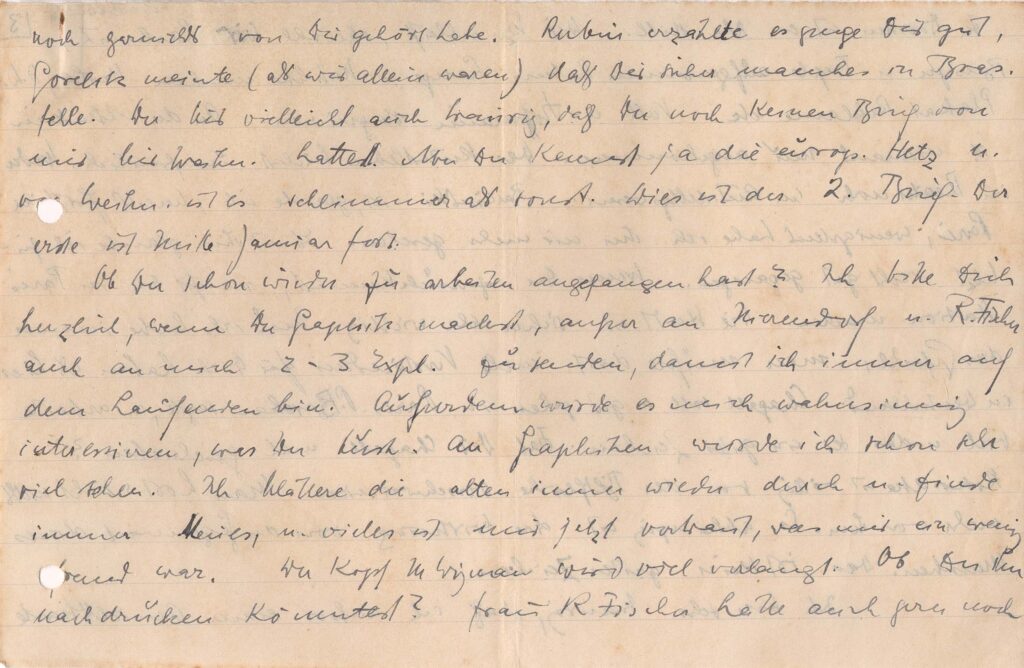 noch garnichts von Dir gehört habe. Rubin erzählte es ginge Dir gut,
Gorelik meinte (als wir allein waren) daß Dir sicher manches in Bras.
fehle. Du bist vielleicht auch traurig, daß Du noch keinen Brief von
mir bis hattest. Aber Du kennst ja die europ. Hetz u.
ist es schlimmer als sonst. Dies ist der 2. Brief. Der
erste ist Mitte Januar fort.
Ob Du schon wieder zu arbeiten angefangen hast? Ich bitte Dich
herzlich, wenn Du Graphik machst, außer an Nierendorf u. R. Fischer
auch an mich 2-3 Expl. zu senden, damit ich immer auf
dem Laufenden bin. Außerdem würde es mich wahnsinnig
interessieren, was Du tust. An Graphiken würde ich schon sehr
viel sehen. Ich blättere die alten immer wieder durch u. finde
immer Neues, u. vieles ist mir jetzt vertraut, was mir ein wenig
fremd war. Der Kopf M. Wigman wird viel verlangt. Ob Du ihn
nachdrucken könntest? Frau R. Fischer hätte auch gern noch